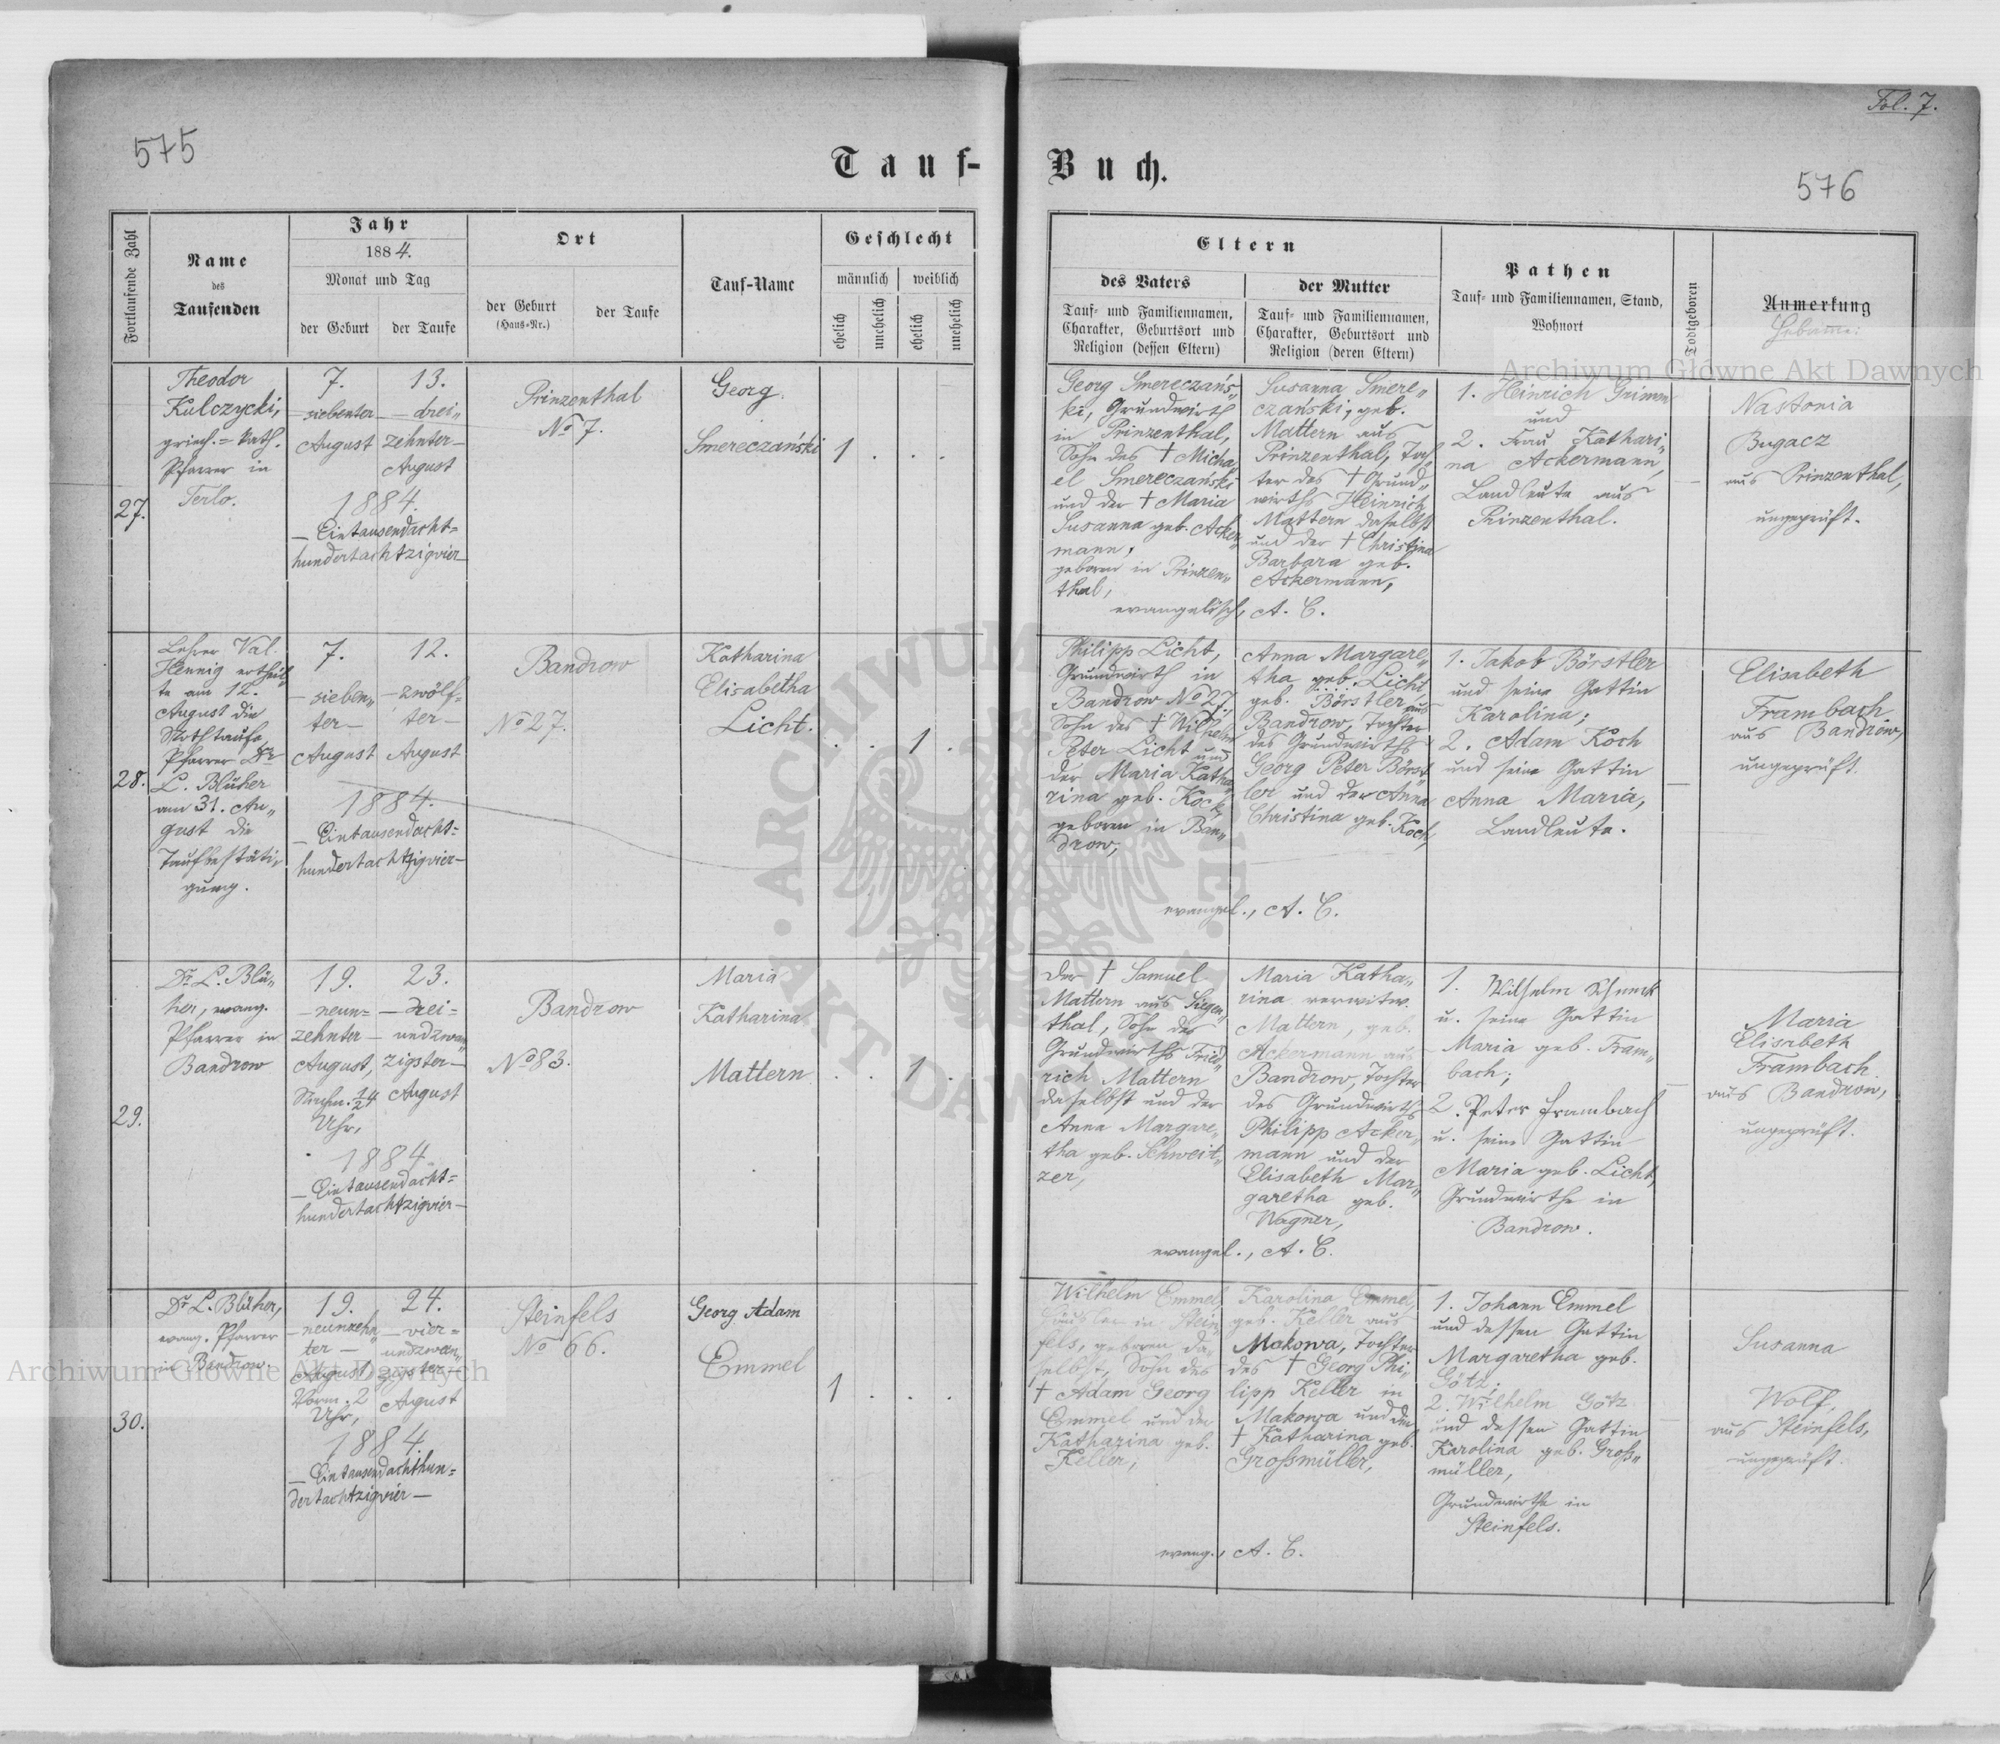 575
Fol. 7.
576
Tauf-Buch.
Fortlaufende Zahl
Name
des
Taufenden
Jahr
1884.
Monat und Tag
der Geburt
der Taufe
Ort
der Geburt
(Haus-Nr.)
der Taufe
Tauf-Name
Geschlecht
männlich
weiblich
ehelich
unehelich
ehelich
unehelich
Eltern
des Vaters
Tauf- und Familiennamen,
Charakter, Geburtsort und
Religion (dessen Eltern)
der Mutter
Tauf- und Familiennamen,
Charakter, Geburtsort und
Religion (deren Eltern)
Pathen
Tauf- und Familiennamen, Stand,
Wohnort
Todtgeboren
Anmerkung
Hebamme:
27.
Theodor
Kulczycki,
griech.=kath.
Pfarrer in
Terlo.
7.
— siebenter
August
13.
— drei„
zehnter —
August
1884.
— Eintausendacht=
hundertachtzigvier —
Prinzenthal
No 7.
Georg
Smereczański
1 . . .
Georg Smereczańs„
ki, Grundwirth
in Prinzenthal,
Sohn des † Micha„
el Smereczański
und der † Maria
Susanna geb. Acker„
mann,
geboren in Prinzen„
thal,
evangelisch, A. C.
Susanna Smere„
czański, geb.
Mattern aus
Prinzenthal, Toch„
ter des † Grund„
wirths Heinrich
Mattern daselbst
und der † Christina
Barbara geb.
Ackermann,
1. Heinrich Grimm
und
2. Frau Kathari„
na Ackermann,
Landleute aus
Prinzenthal.
—
Nastonia
Bugacz
aus Prinzenthal,
ungeprüft.
28.
Lehrer Val.
Hennig ertheil„
te am 12.
August die
Nothtaufe,
Pfarrer Dr
L. Blüher
am 31. Au„
gust die
Taufbestäti„
gung.
7.
— sieben„
ter —
August
12.
— zwölf„
ter —
August
1884.
— Eintausendacht=
hundertachtzigvier —
Bandrow
No 27.
Katharina
Elisabetha
Licht.
. . 1 .
Philipp Licht,
Grundwirth in
Bandrow No 27,
Sohn des † Wilhelm
Peter Licht und
der Maria Katha„
rina geb. Koch,
geboren in Ban„
drow,
evangel., A. C.
Anna Margare„
tha geb. Licht,
geb. Börstler aus
Bandrow, Tochter
des Grundwirths
Georg Peter Börst„
ler und der Anna
Christina geb. Koch,
1. Jakob Börstler
und seine Gattin
Karolina;
2. Adam Koch
und seine Gattin
Anna Maria,
Landleute.
Elisabeth
Frambach
aus Bandrow,
ungeprüft.
29.
Dr L. Blü„
her, evang.
Pfarrer in
Bandrow
19.
— neun=
zehnter —
August,
Nachm. ½4
Uhr,
23.
— drei=
undzwan„
zigster —
August
1884
— Eintausendacht=
hundertachtzigvier —
Bandrow
No 83.
Maria
Katharina
Mattern
. . 1 .
Der † Samuel
Mattern aus Siegen„
thal, Sohn des
Grundwirths Fried„
rich Mattern
daselbst und der
Anna Margare„
tha geb. Schweit„
zer,
evangel., A. C.
Maria Katha„
rina verwitw.
Mattern, geb.
Ackermann aus
Bandrow, Tochter
des Grundwirths
Philipp Acker„
mann und der
Elisabeth Mar„
garetha geb.
Wagner,
1. Wilhelm Schneck
u. seine Gattin
Maria geb. Fram„
bach;
2. Peter Frambach
u. seine Gattin
Maria geb. Licht,
Grundwirthe in
Bandrow.
—
Maria
Elisabeth
Frambach
aus Bandrow,
ungeprüft.
30.
Dr L. Blüher,
evang. Pfarrer
in Bandrow.
19.
— neunzehn„
ter —
August
Vorm. 2
Uhr,
24.
— vier=
undzwan„
zigster —
August
1884
— Eintausendachthun=
dertachtzigvier —
Steinfels
No 66.
Georg Adam
Emmel
1 . . .
Wilhelm Emmel,
Häusler in Stein„
fels, geboren da„
selbst, Sohn des
† Adam Georg
Emmel und der
Katharina geb.
Keller,
evang., A. C.
Karolina Emmel,
geb. Keller aus
Makowa, Tochter
des † Georg Phi„
lipp Keller in
Makowa und der
† Katharina geb.
Großmüller,
1. Johann Emmel
und dessen Gattin
Margaretha geb.
Götz.
2. Wilhelm Götz
und dessen Gattin
Karolina geb. Groß„
müller,
Grundwirthe in
Steinfels.
—
Susanna
Wolf,
aus Steinfels,
ungeprüft.
Archiwum Główne Akt Dawnych
Archiwum Główne Akt Dawnych